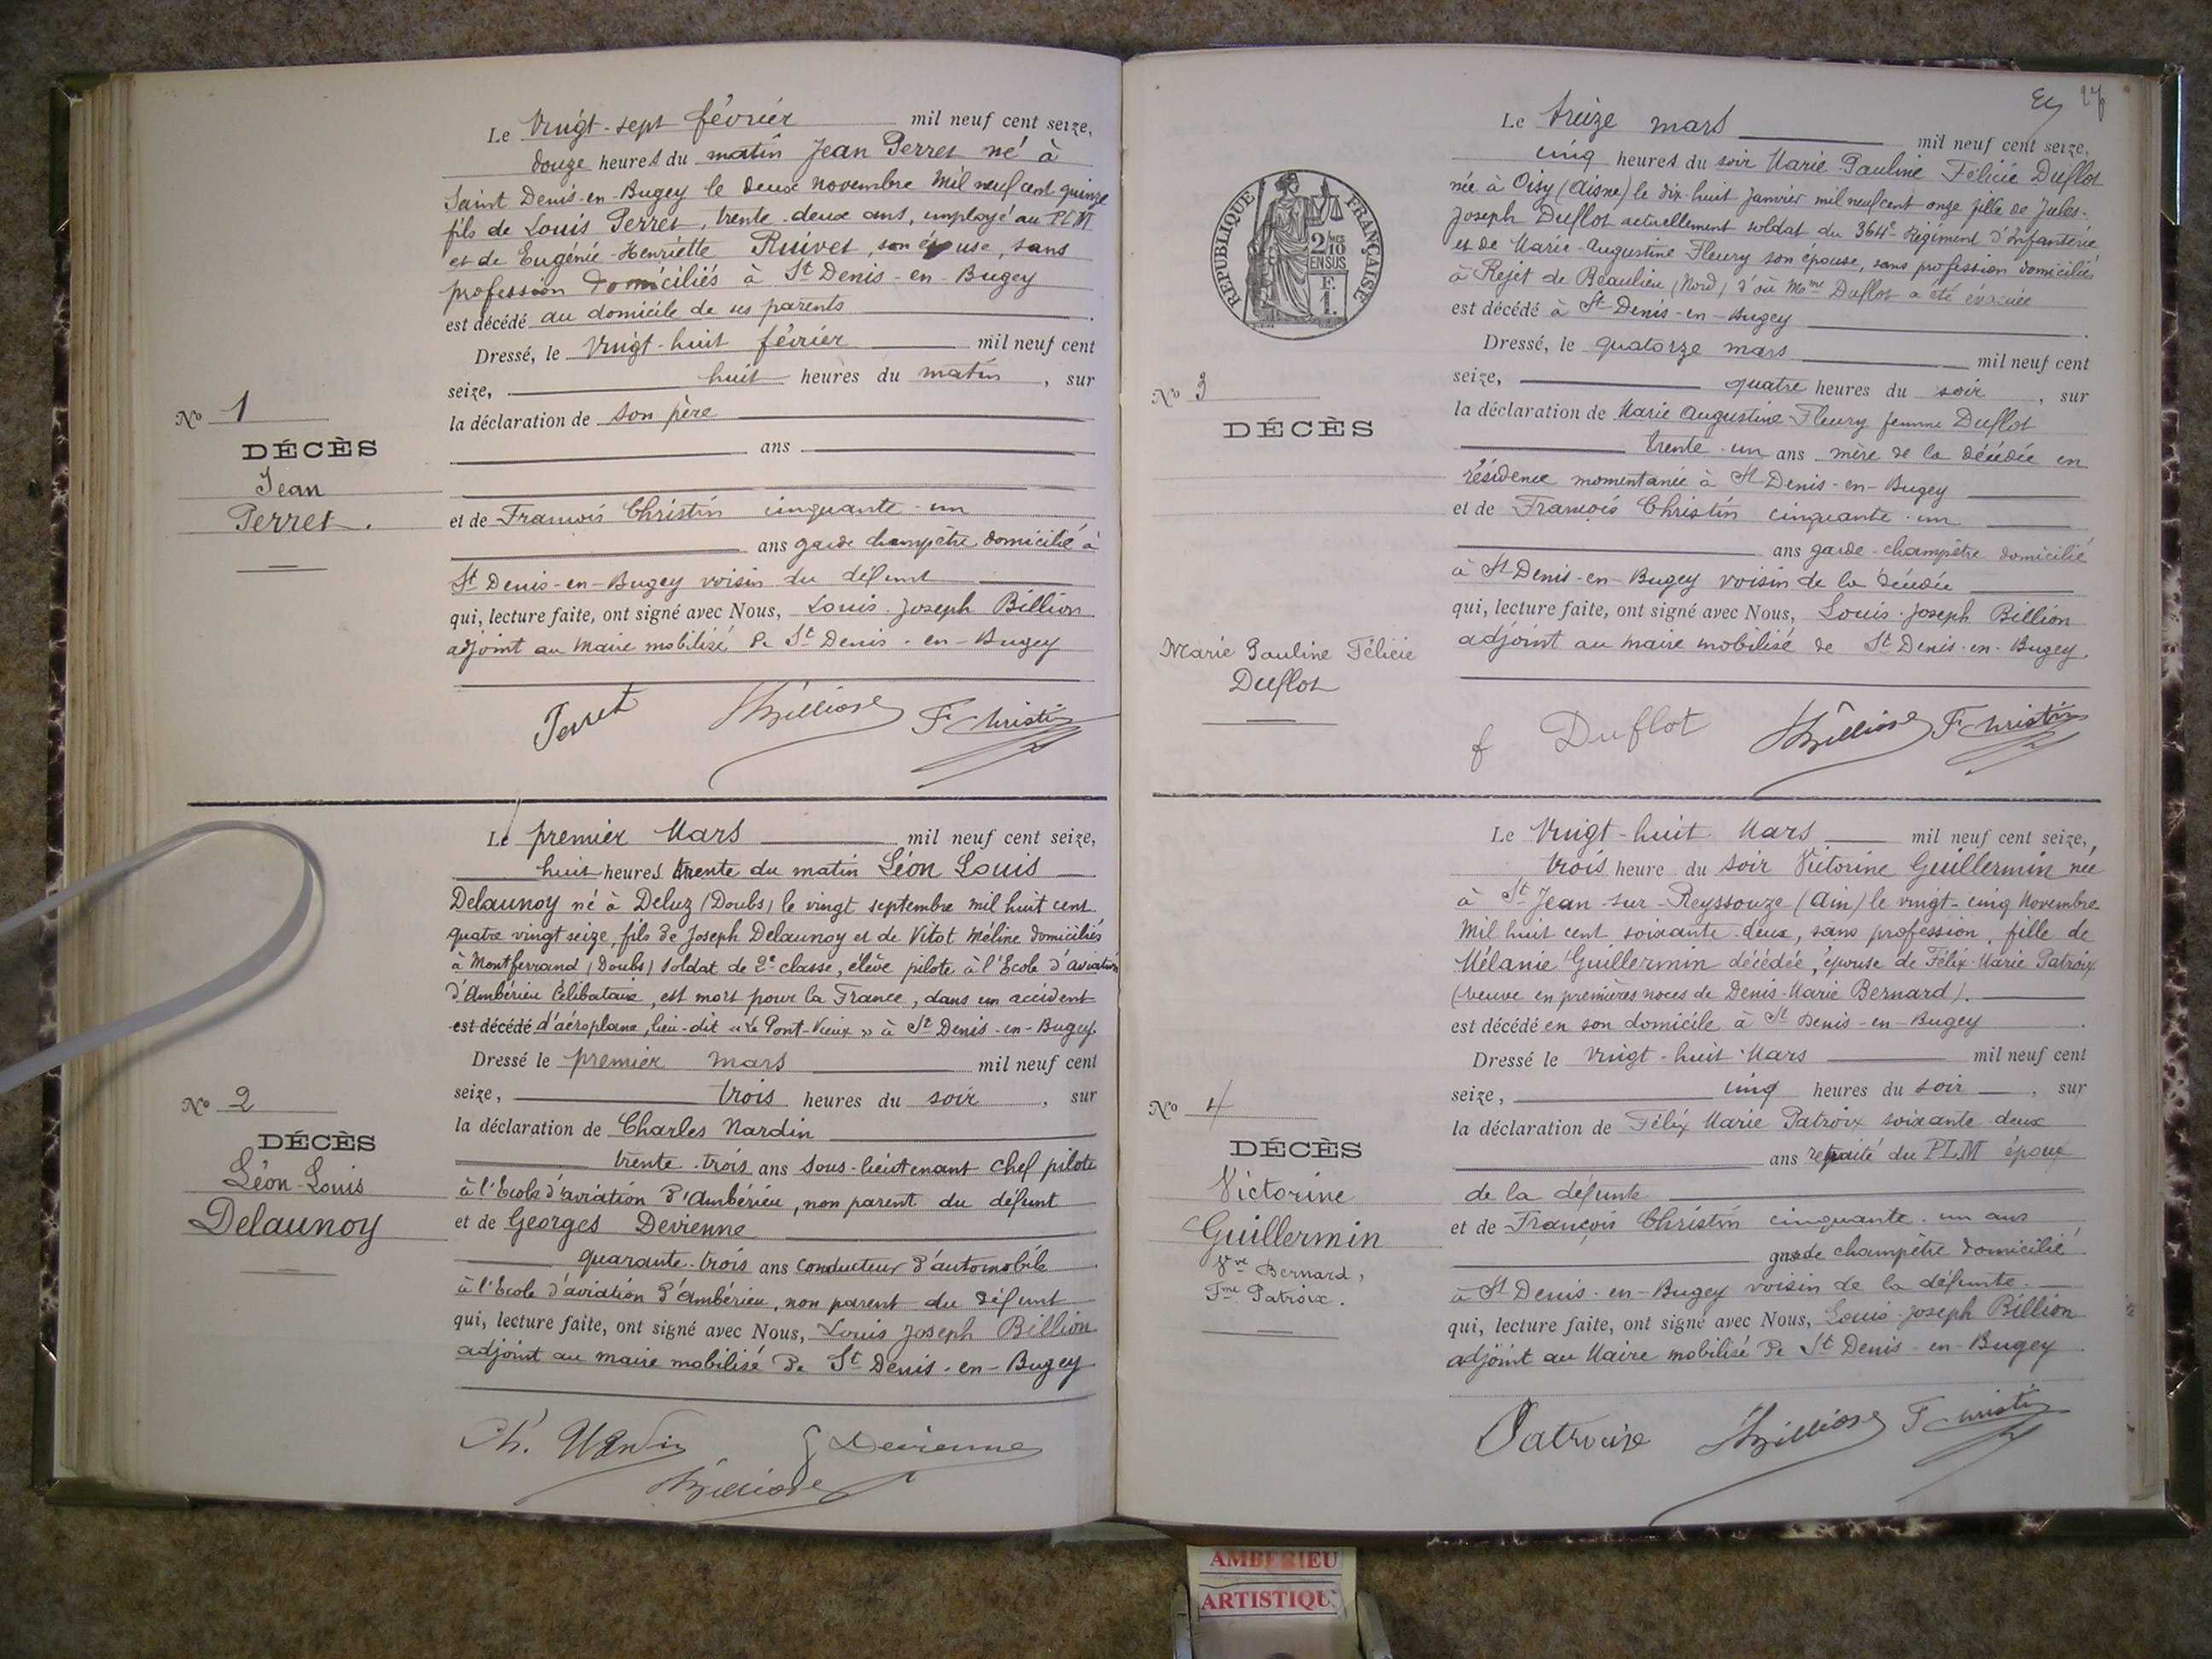 Le Vingt-sept février mil neuf cent seize,
douze heures du matin Jean Perret né à
Saint Denis-en-Bugey le deux novembre mil neuf cent quinze
fils de Louis Perret, trente-deux ans, employé au PLM
et de Eugénie-Henriette Ruivet, son épouse, sans
profession domiciliés à St Denis-en-Bugey
est décédé au domicile de ses parents
Dressé, le Vingt-huit février mil neuf cent
seize, huit heures du matin, sur
la déclaration de son père
ans
et de François Christin cinquante-un
ans garde champêtre domicilié à
St Denis-en-Bugey voisin du défunt
qui, lecture faite, ont signé avec Nous, Louis-Joseph Billion
adjoint au Maire mobilisé de St Denis-en-Bugey
Perret Billion F Christin
No 1
DÉCÈS
Jean
Perret.
Le premier Mars mil neuf cent seize,
huit heures trente du matin Léon Louis
Delaunoy né à Deluz (Doubs) le vingt septembre mil huit cent
quatre vingt seize, fils de Joseph Delaunoy et de Vitot Méline domiciliés
à Montferrand (Doubs) soldat de 2e classe, élève pilote à l'Ecole d'aviation
d'Ambérieu célibataire, est mort pour la France, dans un accident
est décédé d'aéroplane, lieu-dit «Le Pont-Vieux» à St Denis-en-Bugey.
Dressé le premier mars mil neuf cent
seize, trois heures du soir, sur
la déclaration de Charles Nardin
trente-trois ans sous-lieutenant chef pilote
à l'Ecole d'aviation d'Ambérieu, non parent du défunt
et de Georges Devienne
quarante-trois ans conducteur d'automobile
à l'Ecole d'aviation d'Ambérieu, non parent du défunt
qui, lecture faite, ont signé avec Nous, Louis Joseph Billion
adjoint au maire mobilisé de St Denis-en-Bugey
Ch. Nardin G Devienne
Billion
No 2
DÉCÈS
Léon-Louis
Delaunoy
RÉPUBLIQUE FRANÇAISE
2/10
EN SUS
Le treize mars mil neuf cent seize,
cinq heures du soir Marie Pauline Félicie Duflot
née à Oisy (Aisne) le dix-huit janvier mil neuf cent onze fille de Jules-
Joseph Duflot actuellement soldat du 364e Régiment d'Infanterie
et de Marie-Augustine Fleury son épouse, sans profession domiciliés
à Rejet de Beaulieu (Nord) d'où Mme Duflot a été évacuée
est décédé à St-Denis-en-Bugey
Dressé, le quatorze mars mil neuf cent
seize, quatre heures du soir, sur
la déclaration de Marie Augustine Fleury femme Duflot
trente-un ans mère de la décédée en
résidence momentanée à St Denis-en-Bugey
et de François Christin cinquante-un
ans garde-champêtre domicilié
à St Denis-en-Bugey voisin de la décédée
qui, lecture faite, ont signé avec Nous, Louis-Joseph Billion
adjoint au maire mobilisé de St Denis-en-Bugey.
f Duflot Billion F Christin
No 3
DÉCÈS
Marie Pauline Félicie
Duflot
Le Vingt-huit Mars mil neuf cent seize,
trois heure du soir Victorine Guillermin née
à St Jean-sur-Reyssouze (Ain) le vingt-cinq Novembre
Mil huit cent soixante-deux, sans profession, fille de
Mélanie Guillermin décédée, épouse de Félix-Marie Patroix
(veuve en premières noces de Denis-Marie Bernard).
est décédé en son domicile à St Denis-en-Bugey
Dressé le Vingt-huit Mars mil neuf cent
seize, cinq heures du soir, sur
la déclaration de Félix Marie Patroix soixante-deux
ans retraité du PLM époux
de la défunte
et de François Christin cinquante-un ans
garde champêtre domicilié
à St Denis-en-Bugey voisin de la défunte.
qui, lecture faite, ont signé avec Nous, Louis-Joseph Billion
adjoint au Maire mobilisé de St Denis-en-Bugey
Patroix Billion F Christin
No 4
DÉCÈS
Victorine
Guillermin
Vve Bernard,
Fme Patroix.
AMBERIEU
ARTISTIQU